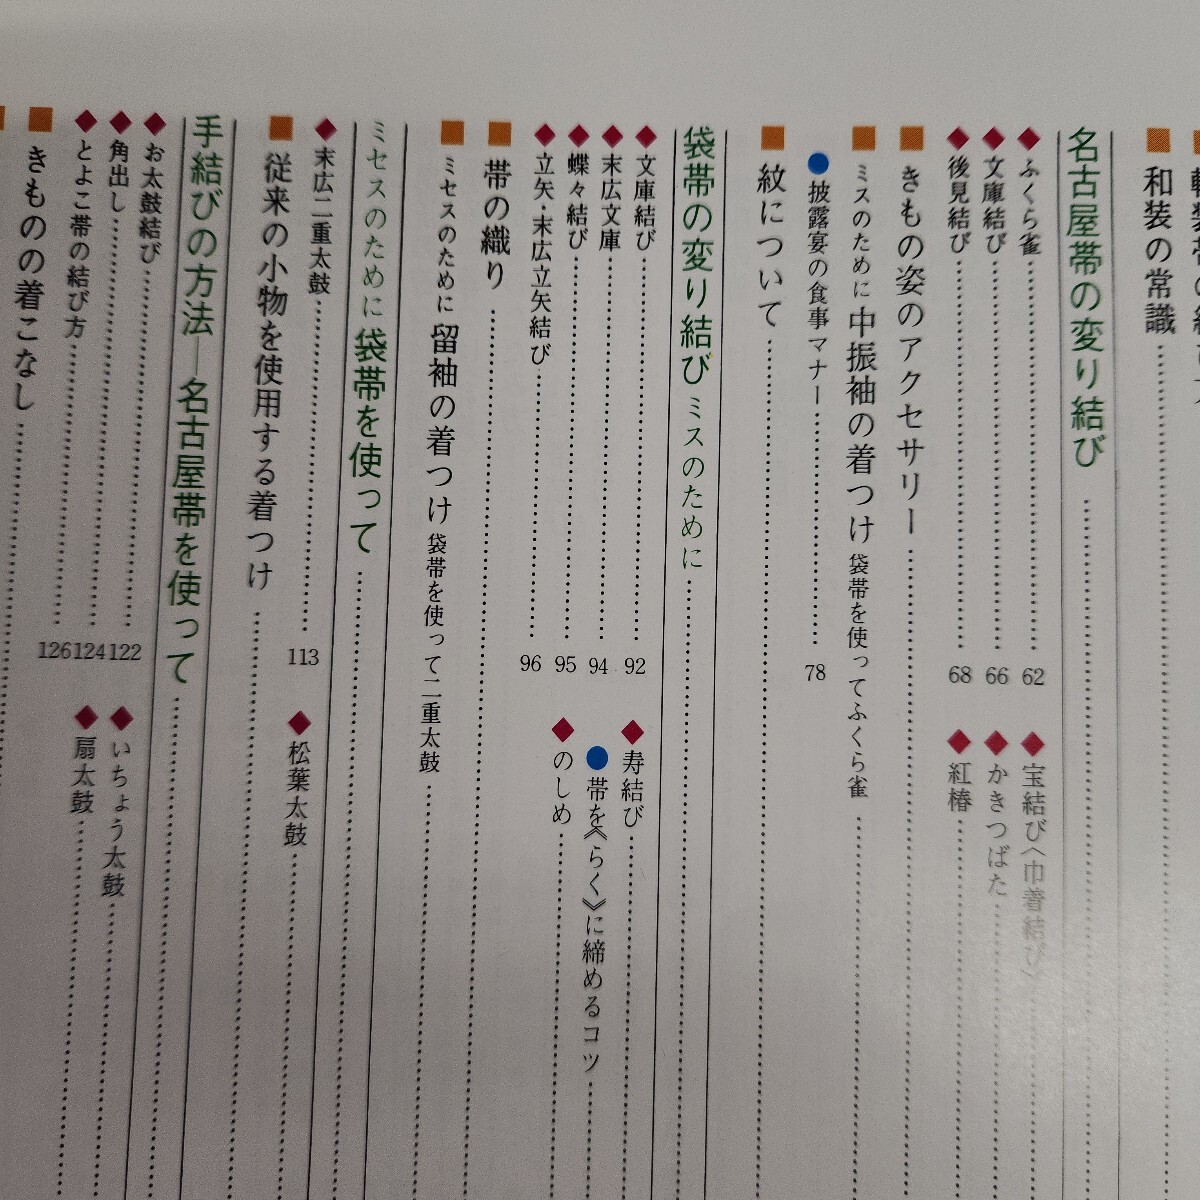 和装の常識
名古屋帯の変り結び
ふくら雀 62
宝結び〈巾着結び〉
文庫結び 66
かきつばた
後見結び 68
紅椿
きもの姿のアクセサリー
ミスのために 中振袖の着つけ 袋帯を使ってふくら雀
披露宴の食事マナー 78
紋について
袋帯の変り結び ミスのために
文庫結び 92
寿結び
末広文庫 94
帯を《らく》に締めるコツ
蝶々結び 95
のしめ
立矢・末広立矢結び 96
帯の織り
ミセスのために 留袖の着つけ 袋帯を使って二重太鼓
ミセスのために 袋帯を使って
末広二重太鼓 113
松葉太鼓
従来の小物を使用する着つけ
手結びの方法—名古屋帯を使って
お太鼓結び 122
いちょう太鼓
角出し 124
扇太鼓
とよこ帯の結び方 126
きものの着こなし